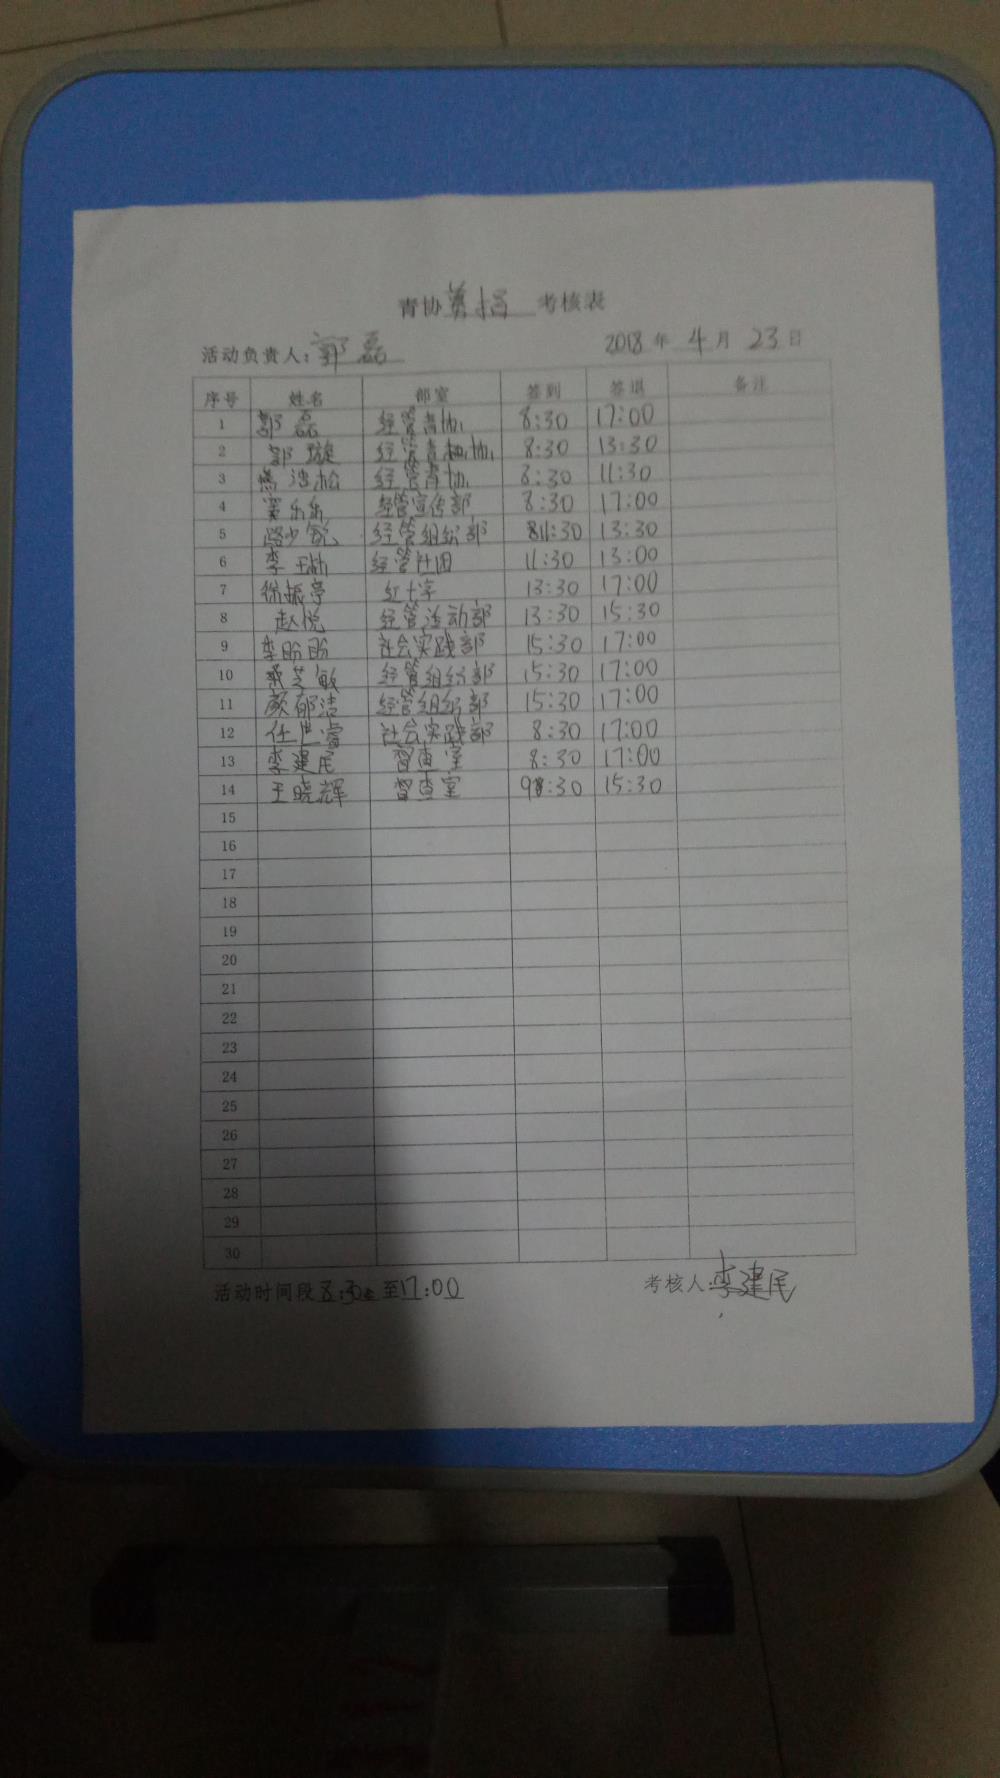 青协募捐 考核表
活动负责人：郭磊 2018年4月23日
序号 姓名 部室 签到 签退 备注
1 郭磊 经管青协 8:30 17:00
2 郭璇 经管青协 8:30 13:30
3 浩松 经管青协 8:30 11:30
4 窦乐乐 经管宣传部 8:30 17:00
5 路少 经管组织部 11:30 13:30
6 李 经管社团 11:30 13:00
7 徐振亭 红十字 13:30 17:00
8 赵悦 经管活动部 13:30 15:30
9 李盼盼 社会实践部 15:30 17:00
10 桑芝敏 经管组织部 15:30 17:00
11 颜郁洁 经管组织部 15:30 17:00
12 任世睿 社会实践部 8:30 17:00
13 李建民 督查室 8:30 17:00
14 王晓辉 督查室 :30 15:30
15
16
17
18
19
20
21
22
23
24
25
26
27
28
29
30
活动时间段8:30至17:00 考核人:李建民